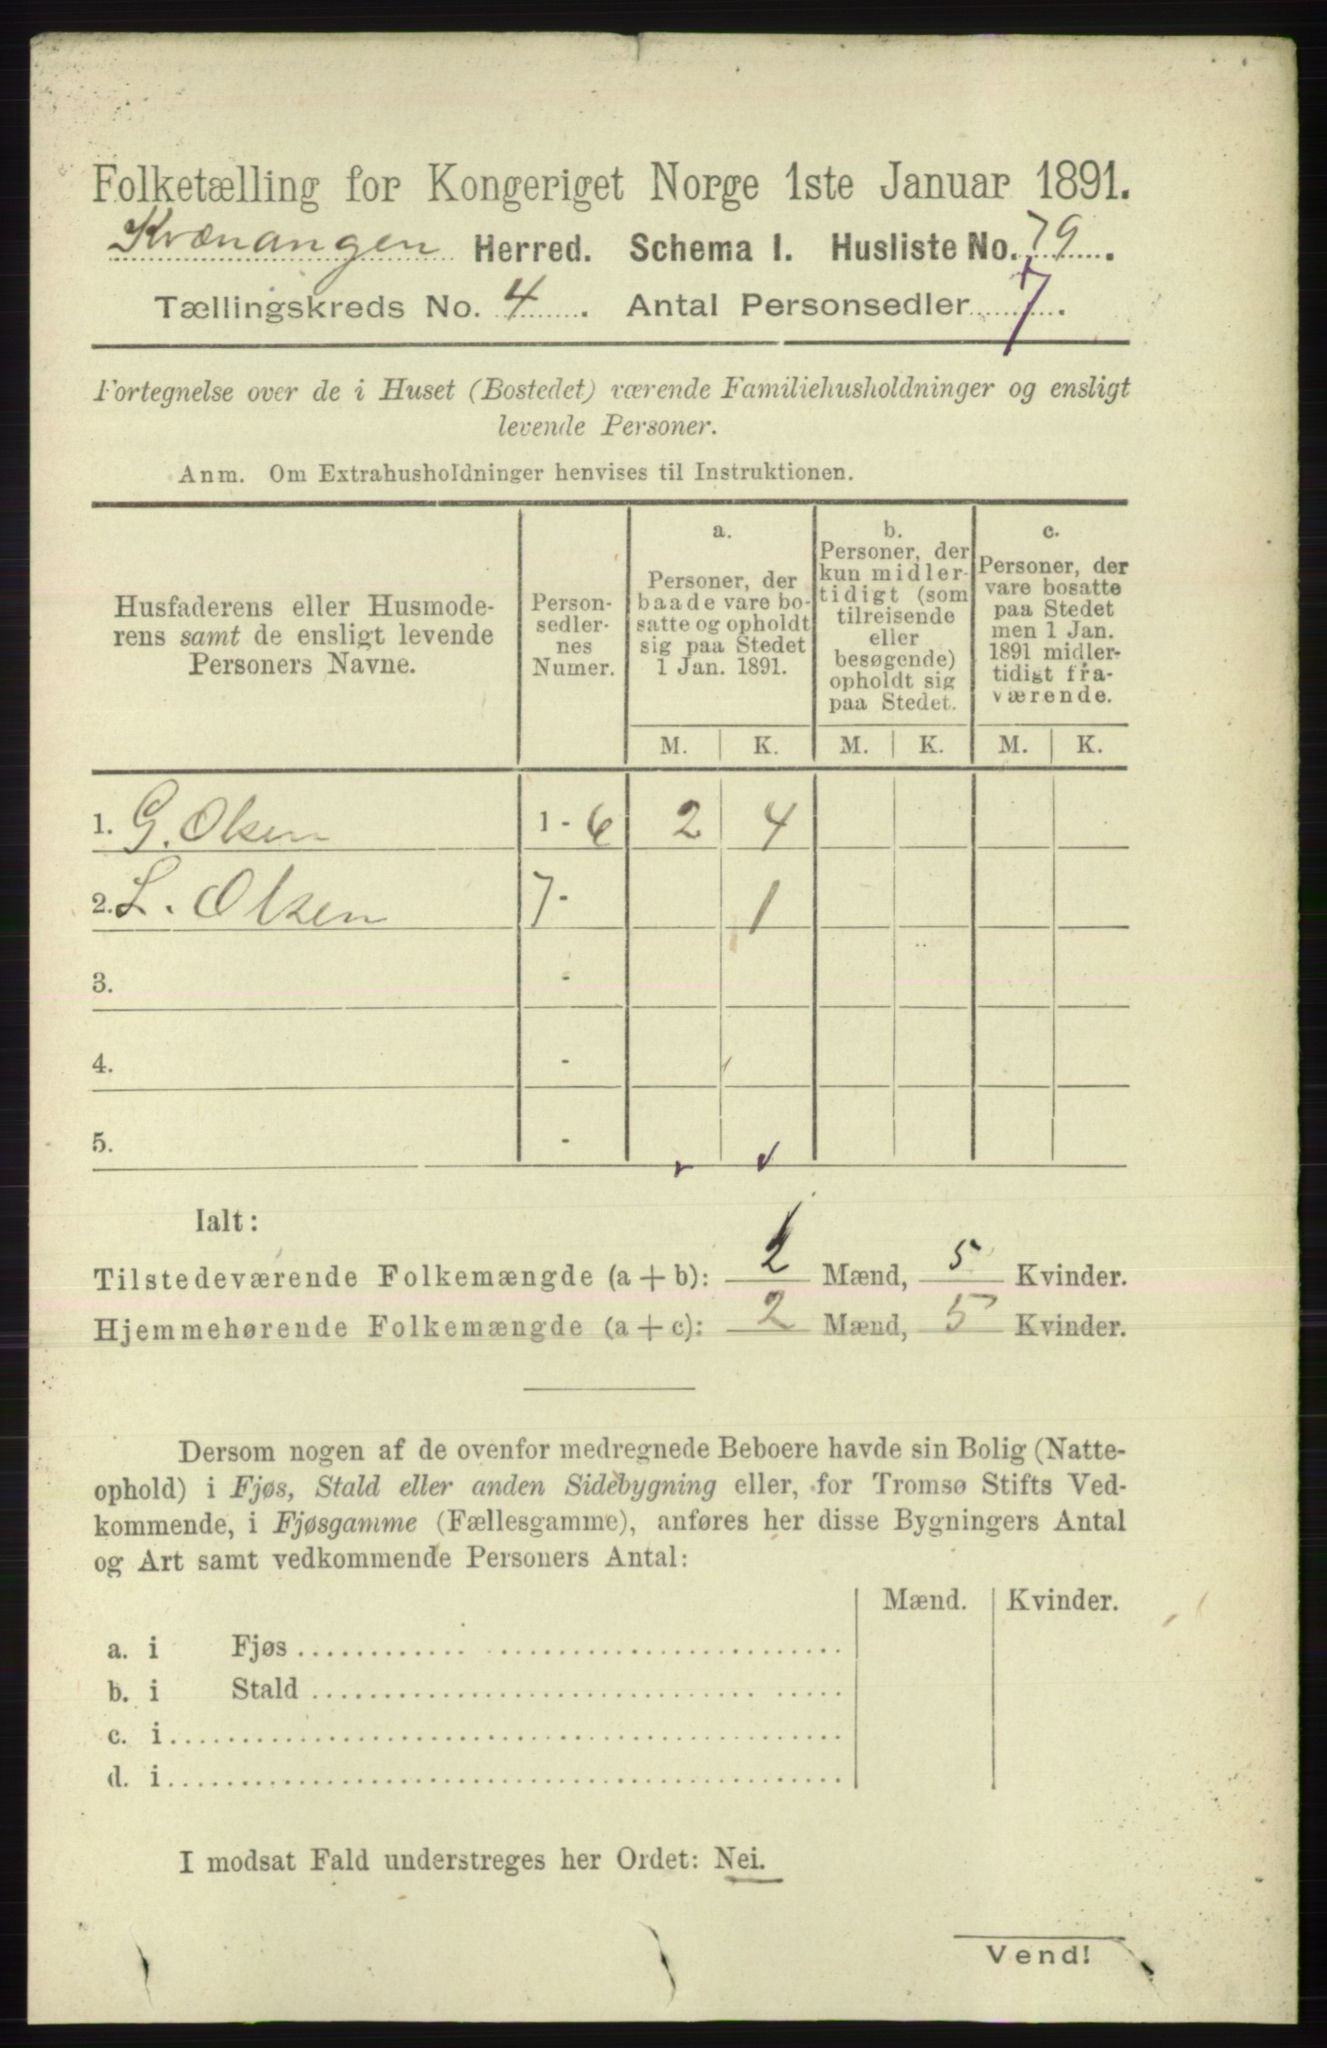 Folketælling for Kongeriget Norge 1ste Januar 1891.
Kvænangen Herred. Schema I. Husliste No. 79.
Tællingskreds No. 4. Antal Personsedler 7.
Fortegnelse over de i Huset (Bostedet) værende Familiehusholdninger og ensligt
levende Personer.
Anm. Om Extrahusholdninger henvises til Instruktionen.
Husfaderens eller Husmode-
rens samt de ensligt levende
Personers Navne.
Person-
sedler-
nes
Numer.
a.
Personer, der
baade vare bo-
satte og opholdt
sig paa Stedet
1 Jan. 1891.
b.
Personer, der
kun midler-
tidigt (som
tilreisende
eller
besøgende)
opholdt sig
paa Stedet.
c.
Personer, der
vare bosatte
paa Stedet
men 1 Jan.
1891 midler-
tidigt fra-
værende.
M. K. M. K. M. K.
1. G. Olsen 1 - 6 2 4
2. L. Olsen 7 - 1
3. -
4. -
5. -
Ialt:
Tilstedeværende Folkemængde (a + b): 2 Mænd, 5 Kvinder.
Hjemmehørende Folkemængde (a + c): 2 Mænd, 5 Kvinder.
Dersom nogen af de ovenfor medregnede Beboere havde sin Bolig (Natte-
ophold) i Fjøs, Stald eller anden Sidebygning eller, for Tromsø Stifts Ved-
kommende, i Fjøsgamme (Fællesgamme), anføres her disse Bygningers Antal
og Art samt vedkommende Personers Antal:
Mænd. Kvinder.
a. i Fjøs
b. i Stald
c. i
d. i
I modsat Fald understreges her Ordet: Nei.
Vend!